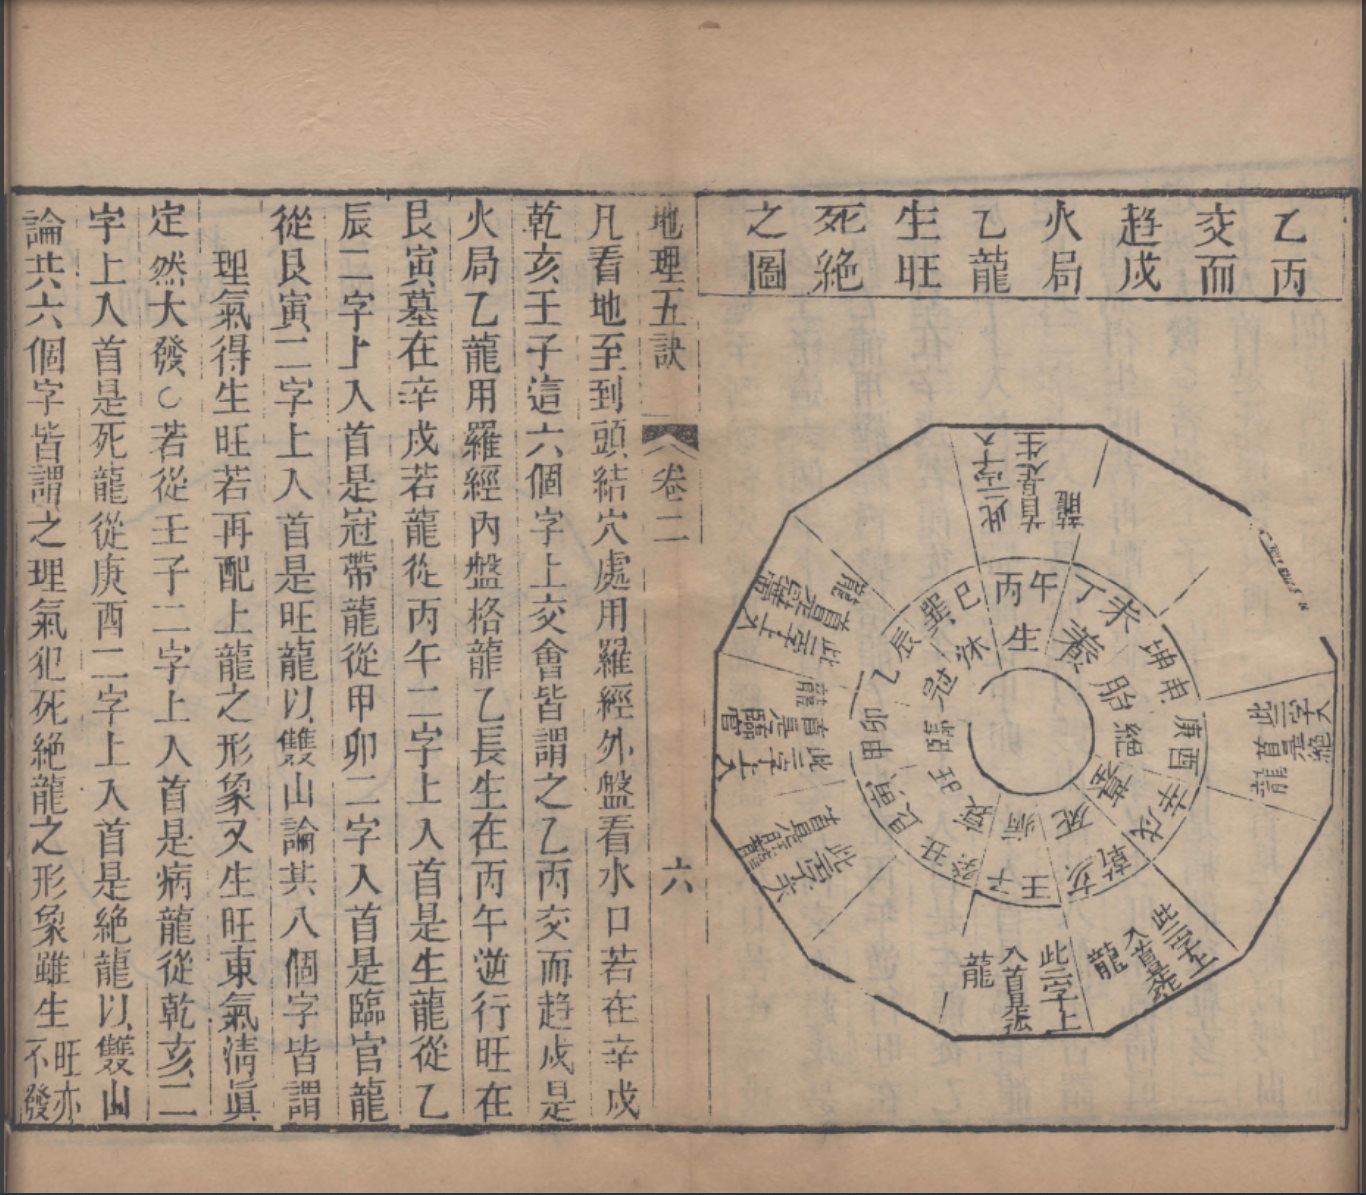 乙丙
交而
趋戍
火局
乙龍
生旺
死絶
之圖
此二字入
首是生
龍
丙午
丁未
坤申
庚酉
辛戌
乾亥
壬子
癸丑
艮寅
甲卯
乙辰
巽巳
生
養
胎
絶
墓
死
病
衰
旺
臨
冠
沐
此二字入
首是絶
龍
此二字上
入首是死
龍
此二字上
入首是病
龍
此二字入
首是旺龍
此二字上入
首是臨官
龍
此二字上入
首是冠帶
龍
地理五訣 卷二 六
凡看地至到頭結穴處用羅經外盤看水口若在辛戍
乾亥壬子這六個字上交會皆謂之乙丙交而趋戍是
火局乙龍用羅經内盤格龍乙長生在丙午逆行旺在
艮寅墓在辛戍若龍從丙午二字上入首是生龍從乙
辰二字上入首是冠帶龍從甲卯二字入首是臨官龍
從艮寅二字上入首是旺龍以雙山論共八個字皆謂
理氣得生旺若再配上龍之形象又生旺東氣淸眞
定然大發○若從壬子二字上入首是病龍從乾亥二
字上入首是死龍從庚酉二字上入首是絶龍以雙山
論共六個字皆謂之理氣犯死絶龍之形象雖生旺亦
不發